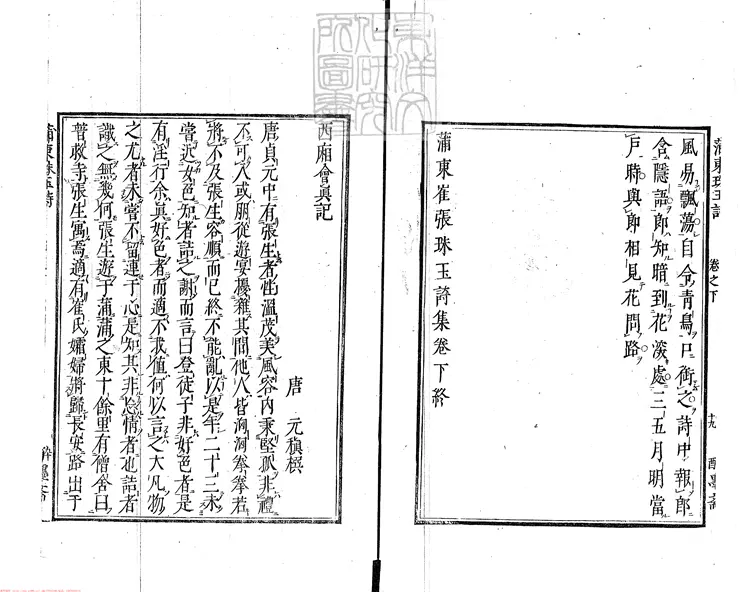 蒲東珠玉詩
卷之下
十九
酣墨斋
風易飄蕩自令青鳥口銜之詩中報郎
含隱語郎知暗到花深處三五月明當
戸時與郎相見花間路
蒲東崔張珠玉詩集卷下終
東洋文
化研究
所圖書
西廂會真記
唐 元稹撰
唐貞元中有張生者性溫茂美風容內秉堅孤非禮
不可入或朋從遊宴擾雜其間他人皆洶洶拳拳若
將不及張生容順而已終不能亂以是年二十三未
嘗近女色知者詰之謝而言曰登徒子非好色者是
有淫行余真好色者而適不我值何以言之大凡物
之尤者未嘗不留連于心是知其非忘情者也詰者
識之無幾何張生遊于蒲蒲之東十餘里有僧舍曰
普救寺張生寓焉適有崔氏孀婦將歸長安路出于
蒲東珠玉詩
酣墨斋